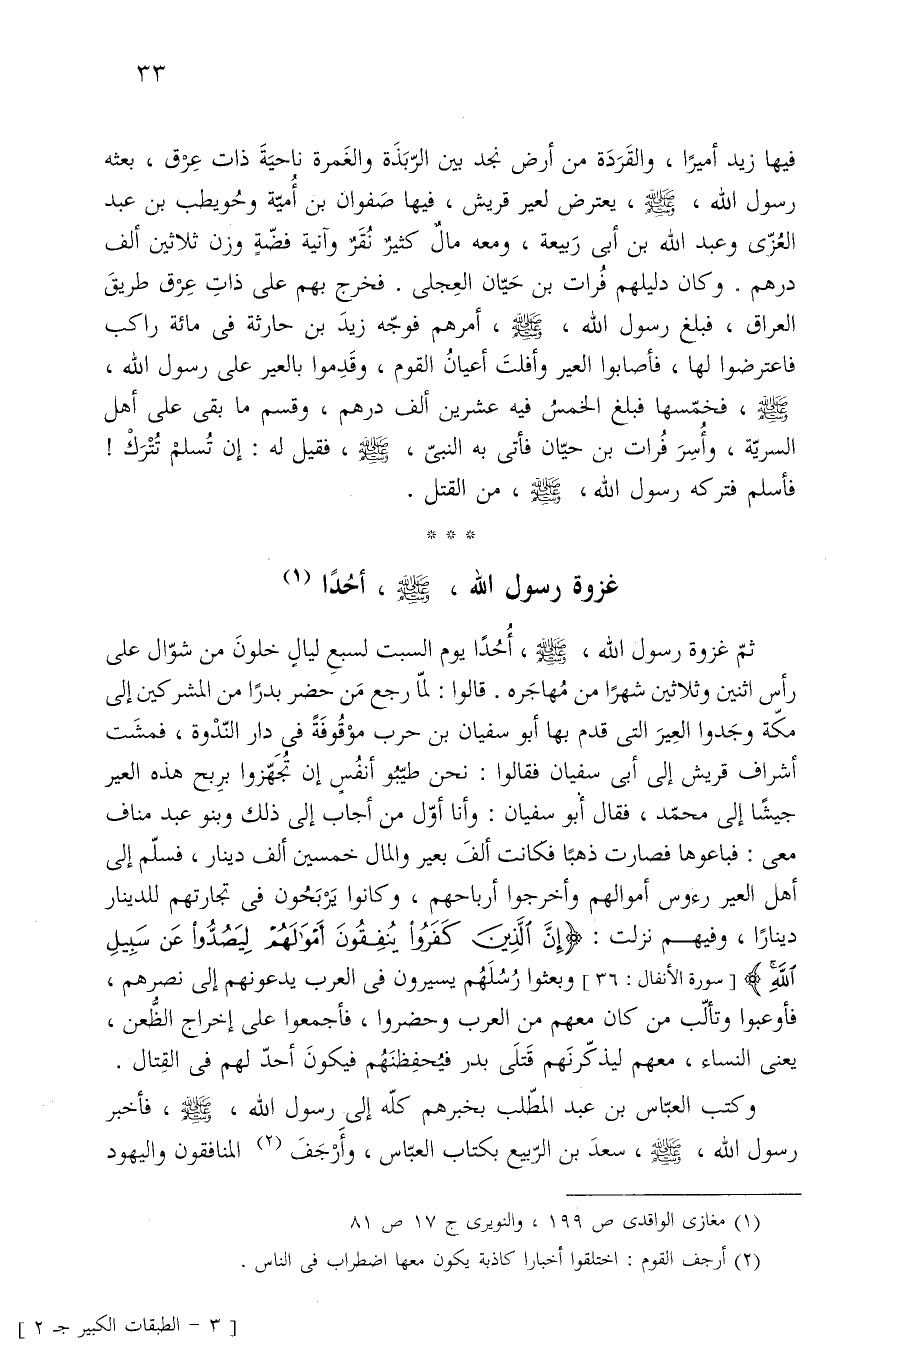 ٣٣
فيها زيد أميرًا ، والقَرَدَة من أرض نجد بين الرّبَذَة والغَمرة ناحيَةَ ذات عِرْق ، بعثه
رسول الله ، ﷺ ، يعترض لعير قريش ، فيها صَفوان بن أُميّة وحُويطب بن عبد
العُزّى وعبد الله بن أبى رَبيعة ، ومعه مالٌ كثيرٌ نُقَرٌ وآنية فضّةٍ وزن ثلاثين ألف
درهم . وكان دليلهم فُرات بن حَيّان العِجلى . فخرج بهم على ذاتِ عِرْق طريقَ
العراق ، فبلغ رسول الله ، ﷺ ، أمرهم فوجّه زيدَ بن حارثة فى مائة راكب
فاعترضوا لها ، فأصابوا العير وأفلتَ أعيانُ القوم ، وقَدِموا بالعير على رسول الله ،
ﷺ ، فخمّسها فبلغ الخمسُ فيه عشرين ألف درهم ، وقسم ما بقى على أهل
السريّة ، وأُسِرَ فُرات بن حيّان فأتى به النبىّ ، ﷺ ، فقيل له : إن تُسلمْ تُتْرَكْ !
فأسلم فتركه رسول الله، ﷺ ، من القتل .
* * *
غزوة رسول الله ، ﷺ ، أحُدًا (١)
ثمّ غزوة رسول الله ، ﷺ ، أُحُدًا يوم السبت لسبعِ ليالٍ خلونَ من شوّال على
رأس اثنين وثلاثين شهرًا من مُهاجَره . قالوا : لمّا رجع مَن حضر بدرًا من المشركين إلى
مكّة وجَدوا العِيرَ التى قدم بها أبو سفيان بن حرب موْقُوفَةً فى دار النّدْوة ، فمشَت
أشراف قريش إلى أبى سفيان فقالوا : نحن طيّبُو أنفُسٍ إن تُجَهّزوا بربح هذه العير
جيشًا إلى محمّد ، فقال أبو سفيان : وأنا أوّل من أجاب إلى ذلك وبنو عبد مناف
معى : فباعوها فصارت ذهبًا فكانت ألفَ بعير والمال خمسين ألف دينار ، فسلّم إلى
أهل العير رءوس أموالهم وأخرجوا أرباحهم ، وكانوا يَرْبَحُون فى تجارتهم للدينار
دينارًا ، وفيهـم نزلت : ﴿إِنَّ ٱلَّذِينَ كَفَرُواْ يُنفِقُونَ أَمْوَٰلَهُمْ لِيَصُدُّواْ عَن سَبِيلِ
ٱللَّهِۚ﴾ [ سورة الأنفال : ٣٦ ] وبعثوا رُسُلَهُم يسيرون فى العرب يدعونهم إلى نصرهم ،
فأوعبوا وتألّب من كان معهم من العرب وحضروا ، فأجمعوا على إخراج الظُّعن ،
يعنى النساء ، معهم ليذكّرنَهم قَتلَى بدر فيُحفِظنَهُم فيكونَ أحدّ لهم فى القِتال .
وكتب العبّاس بن عبد المطّلب بخبرهم كلّه إلى رسول الله ، ﷺ ، فأخبر
رسول الله ، ﷺ ، سعدَ بن الرّبيع بكتاب العبّاس ، وأَرْجَفَ (٢) المنافقون واليهود
(١) مغازى الواقدى ص ١٩٩ ، والنويرى ج ١٧ ص ٨١
(٢) أرجف القوم : اختلقوا أخبارا كاذبة يكون معها اضطراب فى الناس .
[ ٣ – الطبقات الكبير جـ ٢ ]